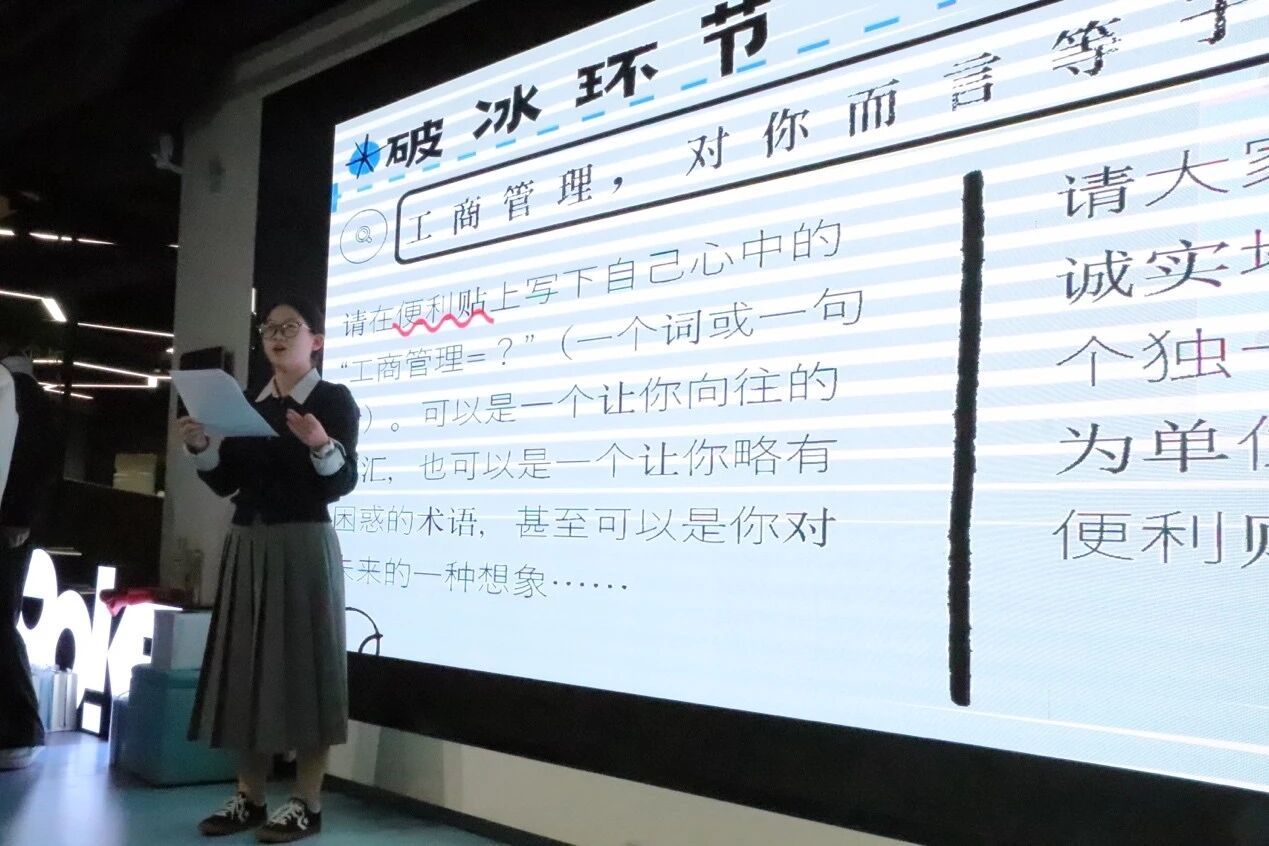 破冰环节
工商管理，对你而言等于
请在便利贴上写下自己心中的
“工商管理=？”（一个词或一句
）。可以是一个让你向往的
汇，也可以是一个让你略有
困惑的术语，甚至可以是你对
未来的一种想象……
请大家
诚实地
个独一
为单位
便利贴